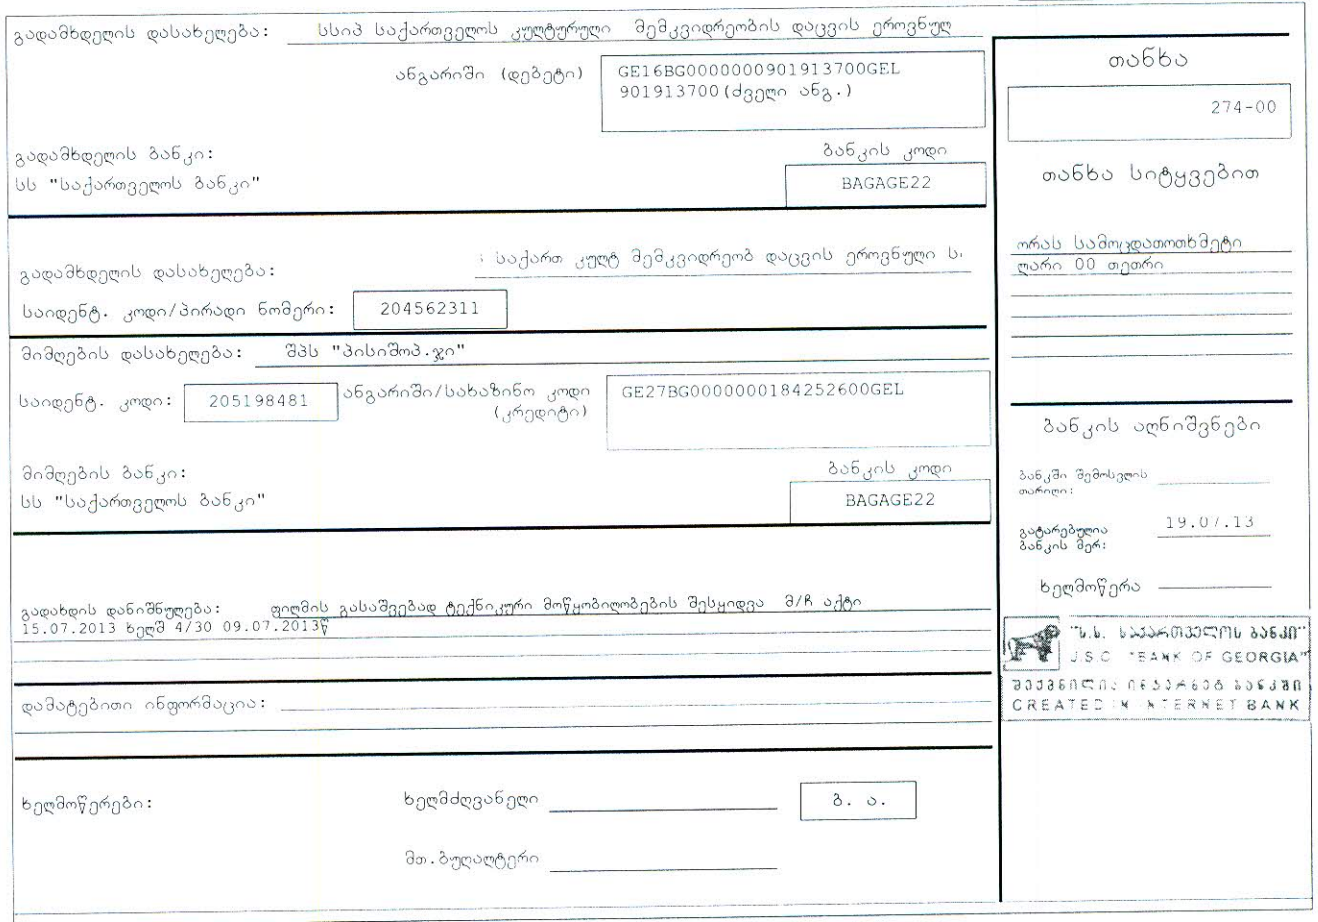 გადამხდელის დასახელება: სსიპ საქართველოს კულტურული მემკვიდრეობის დაცვის ეროვნულ
ანგარიში (დებეტი) GE16BG0000000901913700GEL
901913700(ძველი ანგ.)
გადამხდელის ბანკი: ბანკის კოდი
სს "საქართველოს ბანკი" BAGAGE22
გადამხდელის დასახელება: საქართ კულტ მემკვიდრეობ დაცვის ეროვნული ს.
საიდენტ. კოდი/პირადი ნომერი: 204562311
მიმღების დასახელება: შპს "პისიშოპ.ჯი"
საიდენტ. კოდი: 205198481 ანგარიში/სახაზინო კოდი GE27BG0000000184252600GEL
(კრედიტი)
მიმღების ბანკი: ბანკის კოდი
სს "საქართველოს ბანკი" BAGAGE22
გადახდის დანიშნულება: ფილმის გასაშვებად ტექნიკური მოწყობილობების შესყიდვა მ/ჩ აქტი
15.07.2013 ხელშ 4/30 09.07.2013წ
დამატებითი ინფორმაცია:
ხელმოწერები: ხელმძღვანელი ბ. ა.
მთ.ბუღალტერი
თანხა
274-00
თანხა სიტყვებით
ორას სამოცდათოთხმეტი
ლარი 00 თეთრი
ბანკის აღნიშვნები
ბანკში შემოსვლის
თარიღი:
გატარებულია 19.07.13
ბანკის მერ:
ხელმოწერა
"ს.ს. საქართველოს ბანკი"
J.S.C. "BANK OF GEORGIA"
შექმნილია ინტერნეტ ბანკში
CREATED IN INTERNET BANK